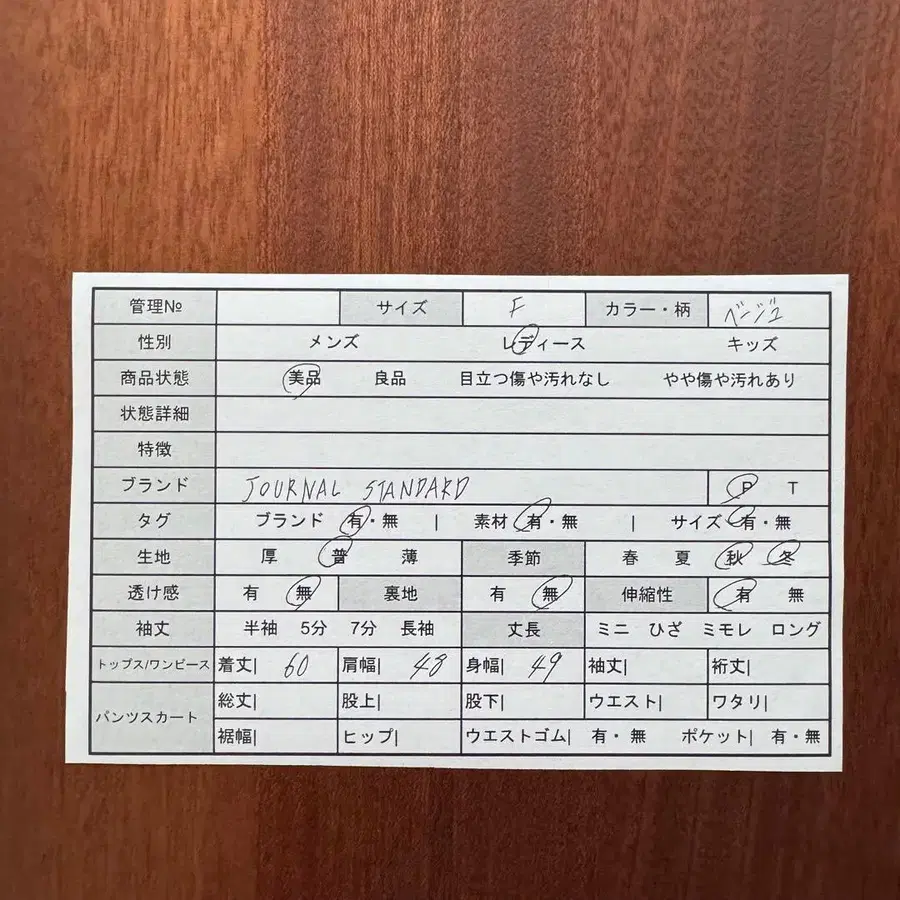 管理№ サイズ F カラー・柄 ベージュ
性別 メンズ レディース キッズ
商品状態 美品 良品 目立つ傷や汚れなし やや傷や汚れあり
状態詳細
特徴
ブランド JOURNAL STANDARD P T
タグ ブランド 有・無 | 素材 有・無 | サイズ 有・無
生地 厚 普 薄 季節 春 夏 秋 冬
透け感 有 無 裏地 有 無 伸縮性 有 無
袖丈 半袖 5分 7分 長袖 丈長 ミニ ひざ ミモレ ロング
トップス/ワンピース 着丈| 60 肩幅| 48 身幅| 49 袖丈| 裄丈|
パンツスカート 総丈| 股上| 股下| ウエスト| ワタリ|
裾幅| ヒップ| ウエストゴム| 有・無 ポケット| 有・無